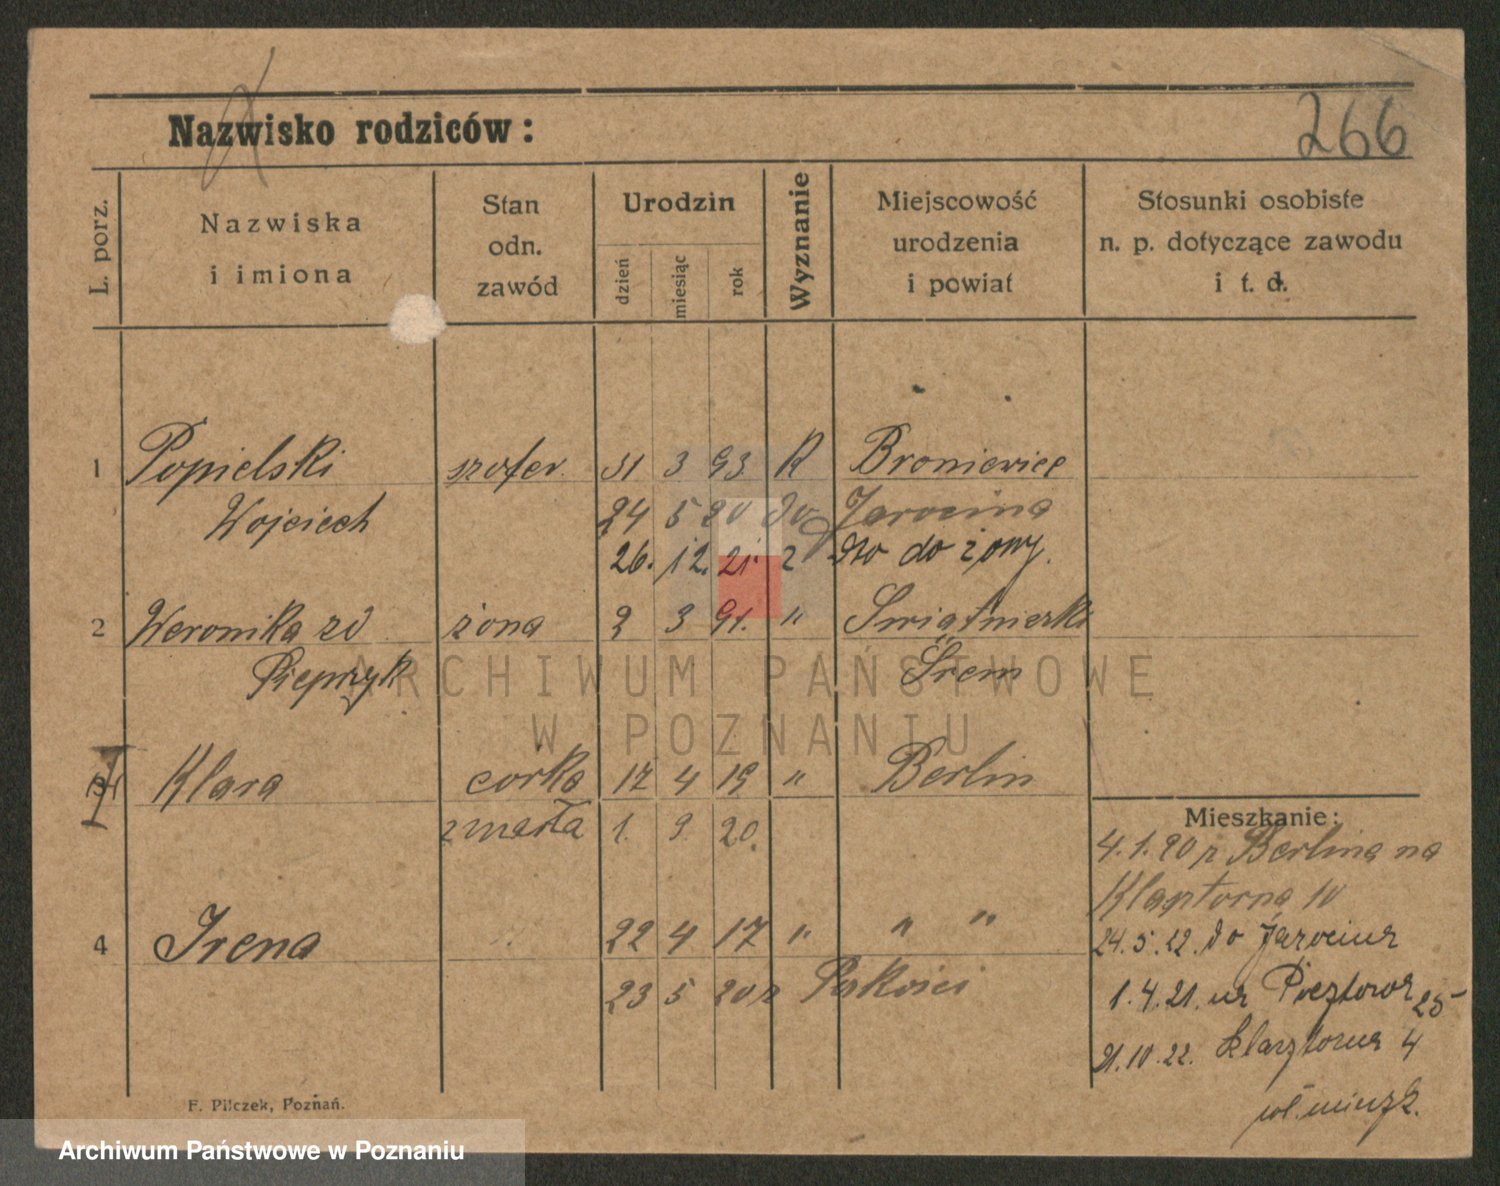 Nazwisko rodziców:
266
L. porz.
Nazwiska
i imiona
Stan
odn.
zawód
Urodzin
dzień
miesiąc
rok
Wyznanie
Miejscowość
urodzenia
i powiat
Stosunki osobiste
n. p. dotyczące zawodu
i t. d.
1 Popielski szofer 31 3 93. K Broniewice
Wojciech 24 5 20 do Jarocina
26. 12. 21. z do żony.
2 Weronika zd żona 2 3 91. " Swiątniczki
Pieprzyk Śrem
3 Klara corka 17 4 19 " Berlin
zmarła 1. 9. 20.
4 Irena 22 4 17 " " "
23 5 20 z Pakości
Mieszkanie:
4.1.20 z Berlina na
Klasztorna 10
24.5.22. do Jarocina
1.4.21. na Pocztowa 25
21.10.22. Klasztorna 4
wł. mieszk.
F. Pilczek, Poznań.
ARCHIWUM PAŃSTWOWE
W POZNANIU
Archiwum Państwowe w Poznaniu